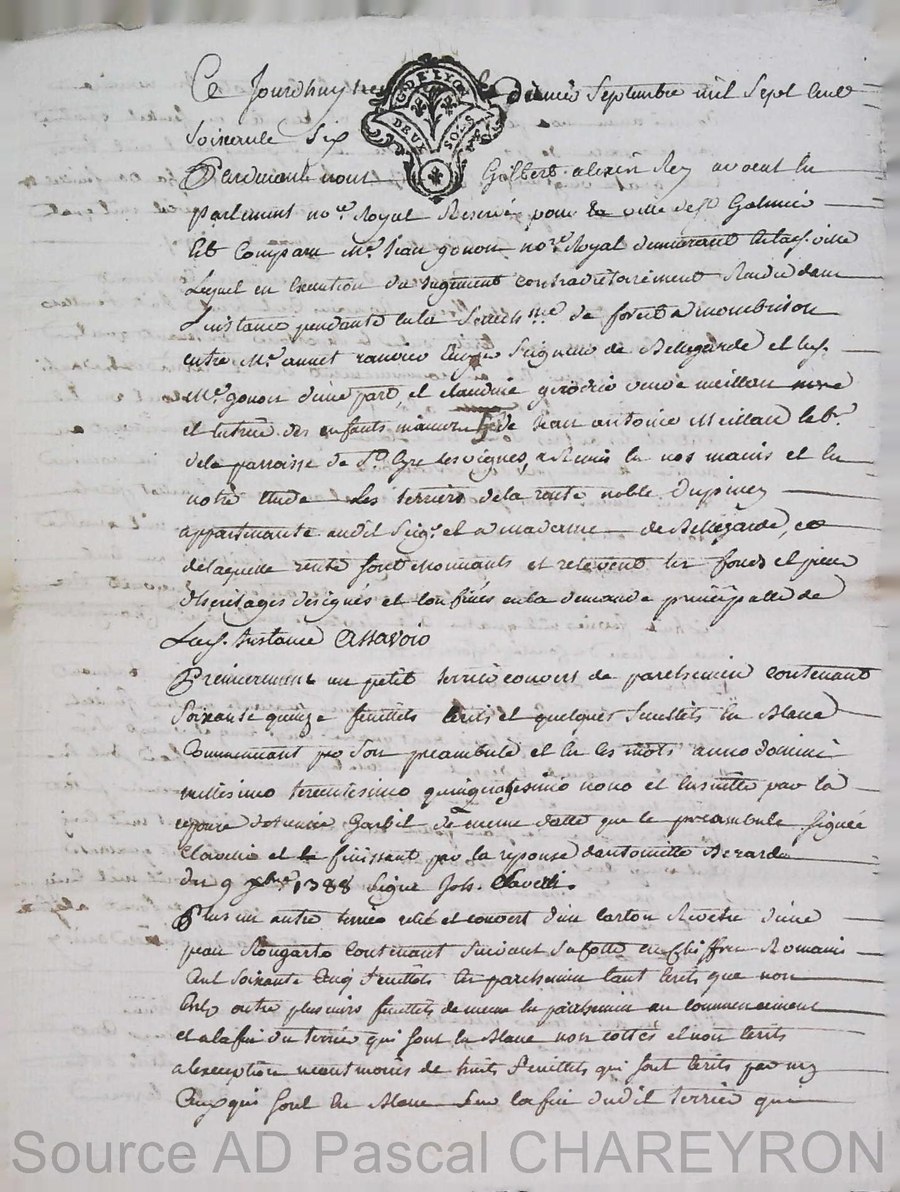 Ce Jourdhuy dixme Septembre mil Sept Cent
Soixente Six
G. DE LYON
DEUX SOLS
Pardevant nous Gilbert alexis Rey avocat en
parlement nore Royal Reservé pour la ville de St Galmier
Est Comparu Me Jean gonon nore Royal demeurant en lad. ville
Lequel en Execution du Jugement contradictoirement Rendu dans
L'instance pendante en la Senechée de forest a montbrison
entre Mre annet Seigneur de Bellegarde et led.
Me gonon d'une part et claudine girodie veuve meillan mere
et tutrice des enfants mineurs de Jean antoine Meillan labr
de la parroisse de St Cyr les vignes, a Remis en nos mains et en
notre Etude Les terriers de la rente noble Dupiney
appartenante audit Seigr et a madame de Bellegarde, et
delaquelle rente sont mouvants et relevent les fonds et pieces
d'heritages designés et confinés en la demande principalle de
Lad. Instance Assavoir
Premierement un petit terrier couvert de parchemin contenant
Soixante quinze feuillets Ecrits et quelques feuillets en Blanc
Commencant par Son preambule et en ces mots anno domini
millesimo tercentesimo quinquagesimo nono et ensuitte par la
reponse Garbil de meme datte que le preambule Signée
Claveli et finissant par la reponse dantoinette Berarde
du 9 xbre 1388 Signé Joh. Clavelli.
Plus un autre terrier relié et couvert d'un carton Revetu d'une
peau Rougeatre contenant Suivant Sa Cotte en Chiffre Romains
Cent Soixante Cinq feuillets en parchemin tant Ecrits que non
Ecrits outre plusieurs feuillets de meme en parchemin au commencement
et a la fin du terrier qui sont en Blanc non cottés et non Ecrits
a lexception neantmoins de huit feuillets qui sont Ecrits parmy
Ceux qui sont en Blanc Sur la fin dudit terrier qui
Source AD Pascal CHAREYRON